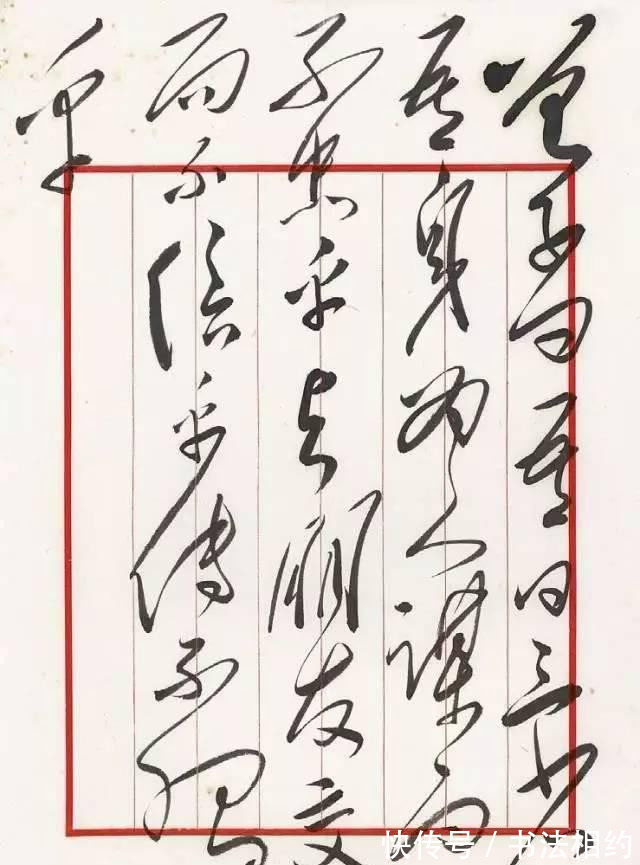 曾子曰吾日三省
吾身为人谋而
不忠乎与朋友交
而不信乎传不習
乎
快传号 / 书法相约